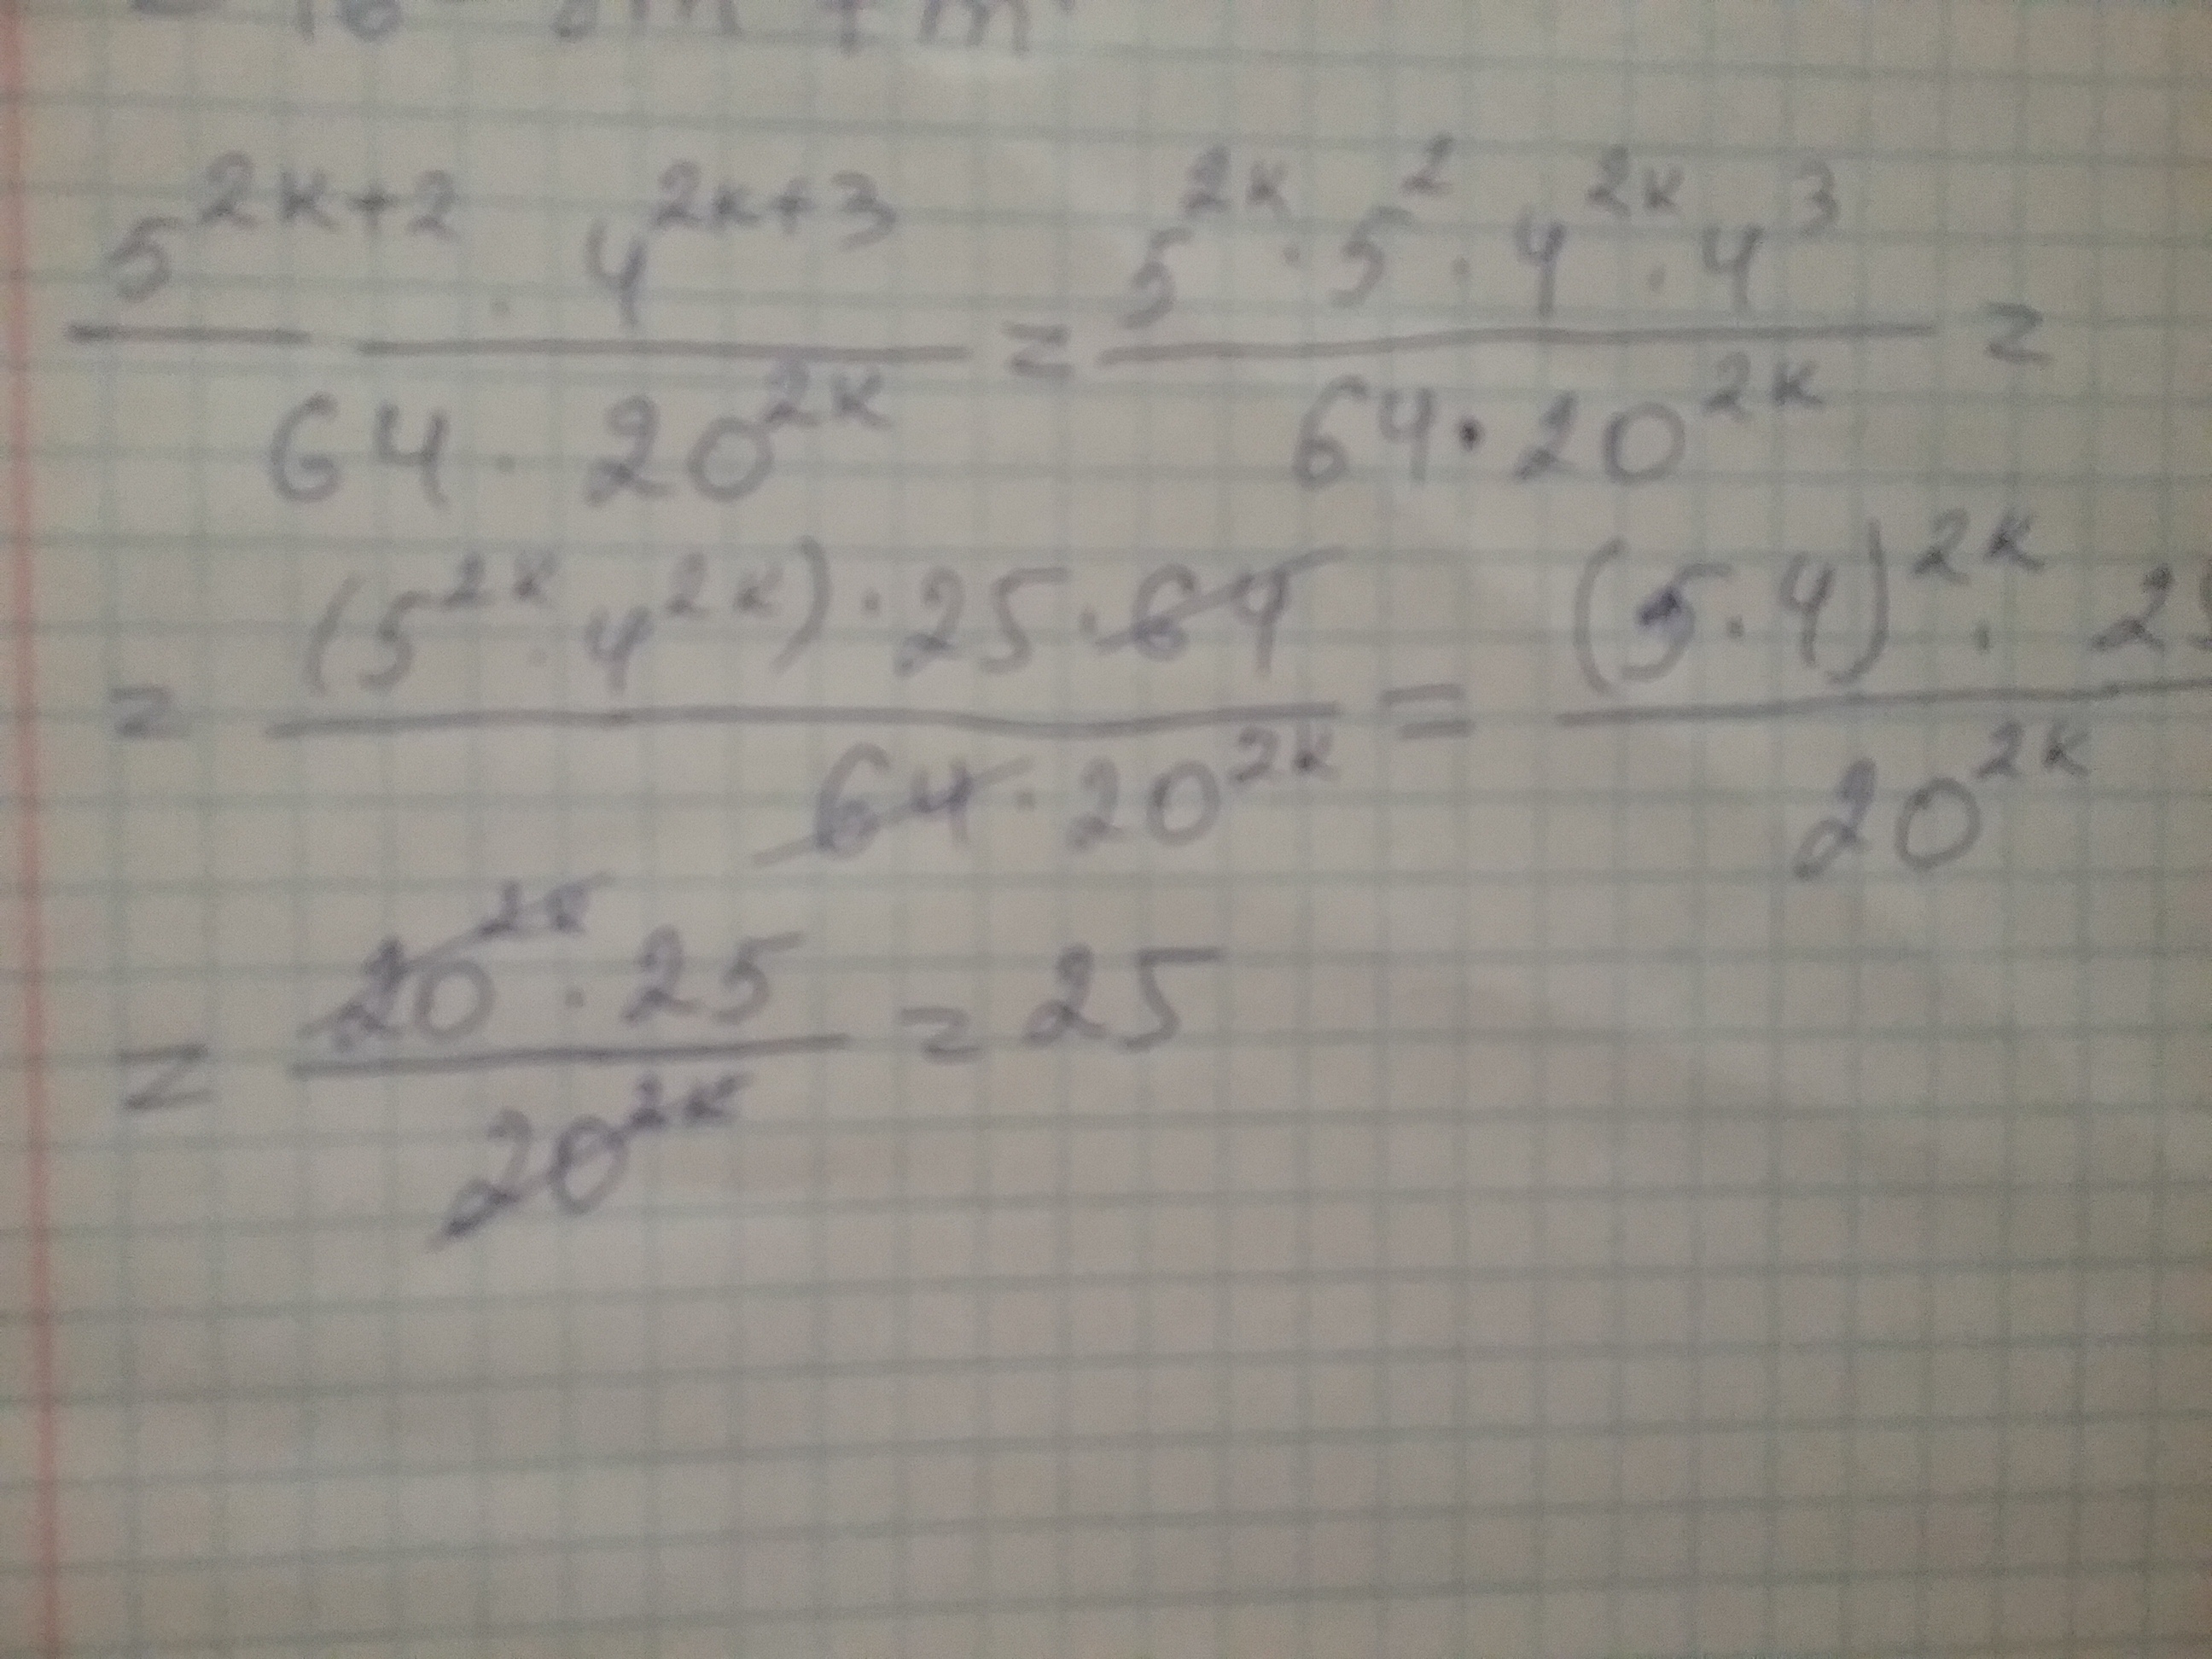 5^{2k+2} · 4^{2k+3} / 64 · 20^{2k} = 5^{2k} · 5^2 · 4^{2k} · 4^3 / 64 · 20^{2k} =
= (5^{2k} · 4^{2k}) · 25 · 64 / 64 · 20^{2k} = (5 · 4)^{2k} · 25 / 20^{2k}
= 20^{2k} · 25 / 20^{2k} = 25